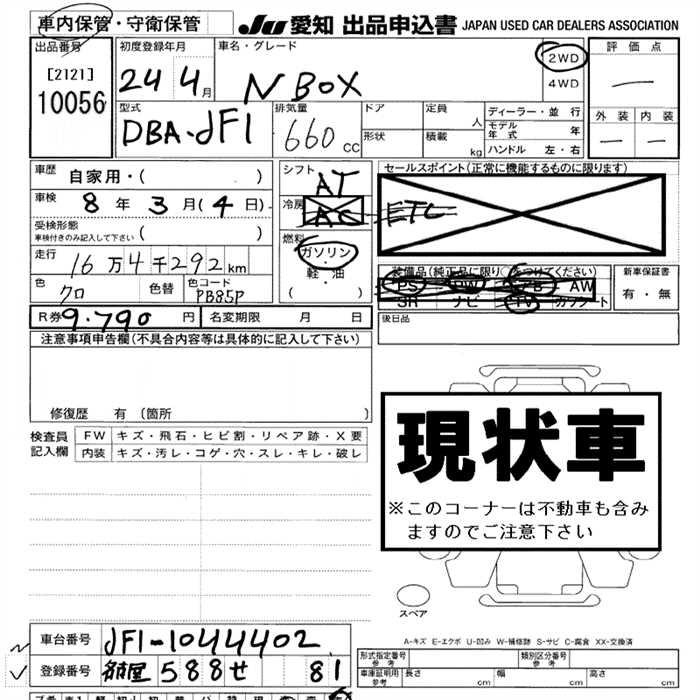 車内保管・守衛保管 JU 愛知 出品申込書 JAPAN USED CAR DEALERS ASSOCIATION
出品番号 初度登録年月 車名・グレード 2WD 評価点
[2121] 24 4月 N BOX 4WD
10056 外装 内装
型式 排気量 ドア 定員 人 ディーラー・並行
DBA-JF1 660cc 形状 積載 kg モデル年式 年
ハンドル 左・右
車歴 自家用・( )
車検 8年 3月(4日)
受検形態 ( )
車検付きのみ記入して下さい
走行 16万4千292km
色 クロ 色替 色コード PB85P
シフト AT
冷房 AC
燃料 ガソリン・軽・油
( )
セールスポイント(正常に機能するものに限ります)
ETC
装備品(純正品に限り をつけてください) 新車保証書
PS PW AB AW 有・無
SR ナビ TV カワシート
R券 9.790円 名変期限 月 日 後日品
注意事項申告欄(不具合内容等は具体的に記入して下さい)
修復歴 有(箇所 )
検査員 FW キズ・飛石・ヒビ割・リペア跡・X要
記入欄 内装 キズ・汚レ・コゲ・穴・スレ・キレ・破レ
現状車
※このコーナーは不動車も含み
ますのでご注意下さい
スペア
A-キズ E-エクボ U-凹み W-補修跡 S-サビ C-腐食 XX-交換済
車台番号 JF1-1044402
登録番号 名古屋 588せ 81
形式指定番号 参考 類別区分番号 参考
車庫証明用 参考 長さ cm 幅 cm 高さ cm